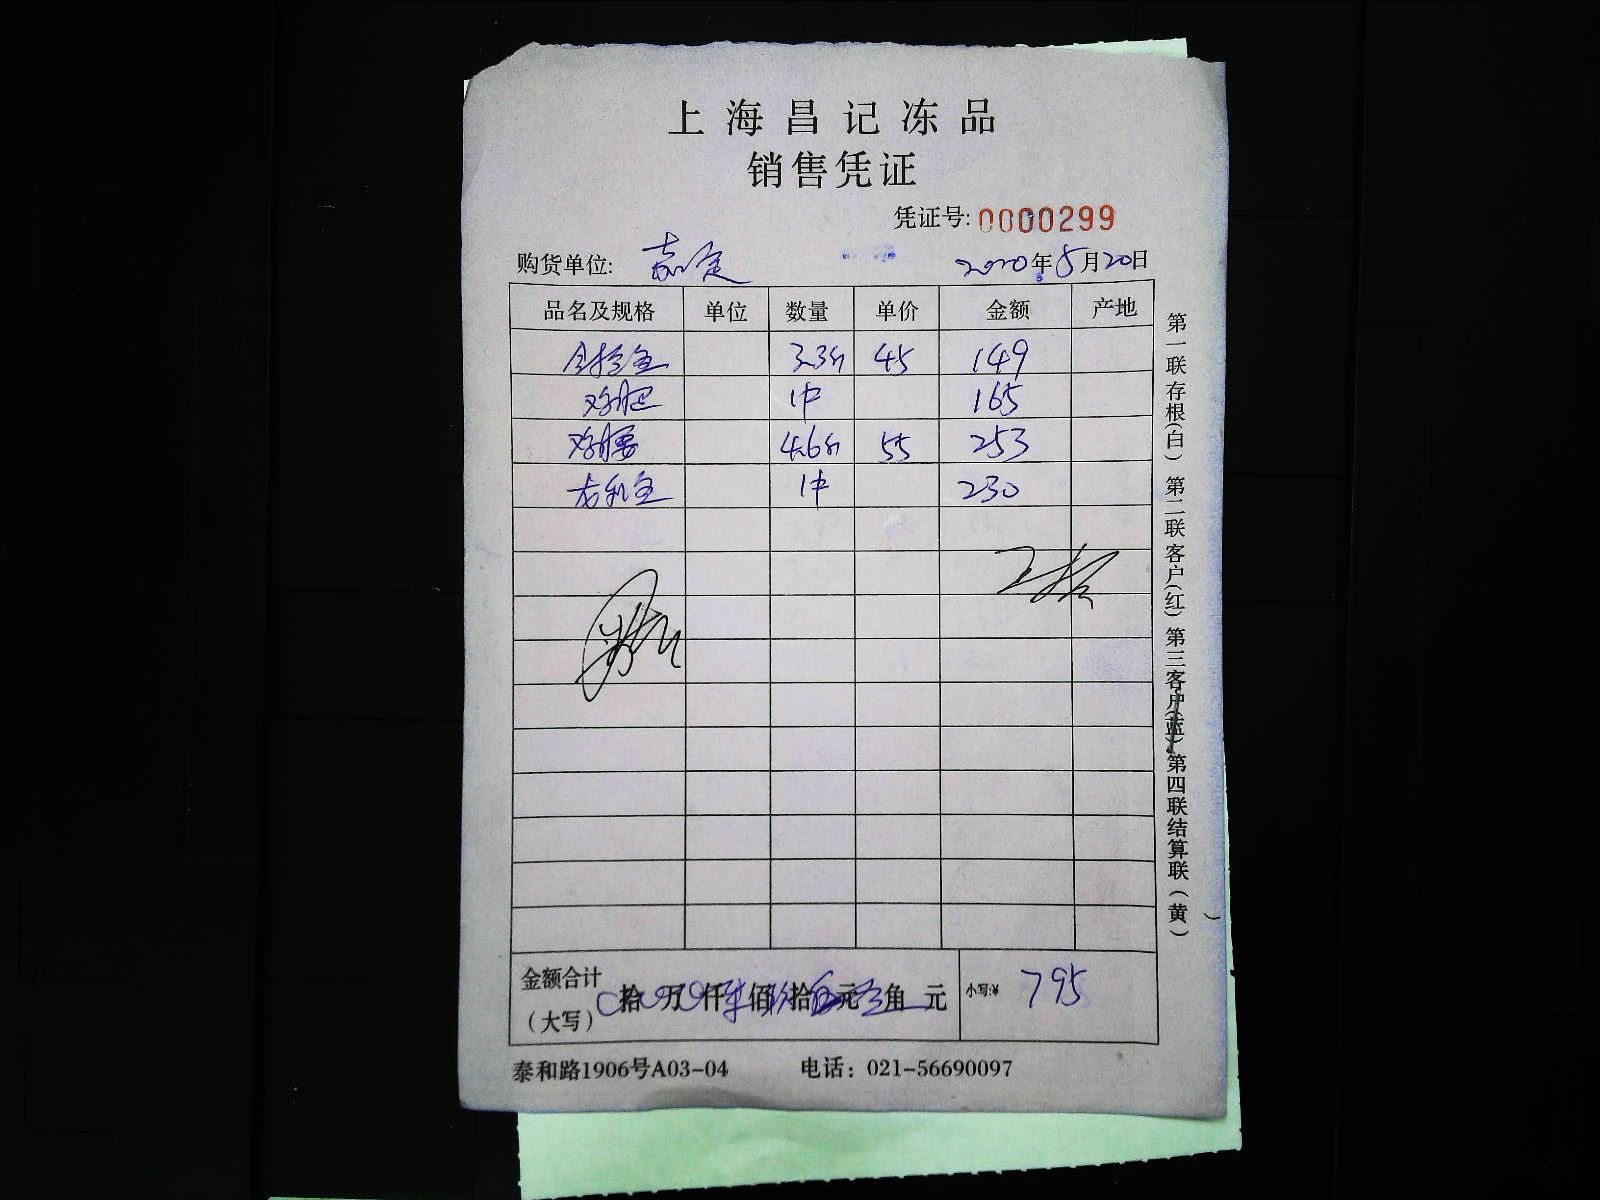 上海昌记冻品
销售凭证
凭证号: 0000299
购货单位: 嘉定 2020年5月20日
品名及规格 单位 数量 单价 金额 产地
3.3斤 45 149
鸡胗 1件 165
鸡腰 4.6斤 55 253
龙利鱼 1件 230
金额合计(大写) 拾 万 仟 柒佰 玖拾 伍元 角 元 小写:¥ 795
泰和路1906号A03-04 电话: 021-56690097
第一联存根(白) 第二联客户(红) 第三客户(蓝) 第四联结算联(黄)